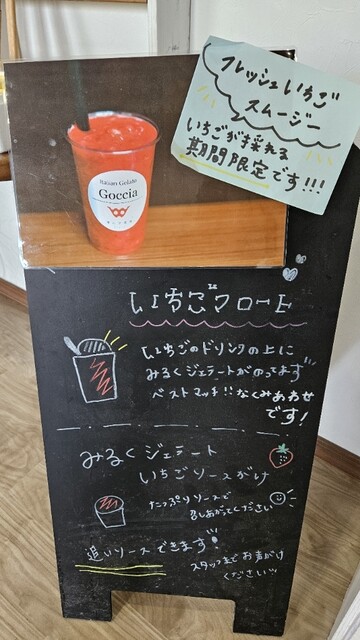 フレッシュいちご
スムージー
いちごが採れる
期間限定です!!!
Italian Gelato
Goccia
いちごフロート
いちごのドリンクの上に
みるくジェラートがのってます
ベストマッチ!!なくみあわせ
です!
みるくジェラート
いちごソースがけ
たっぷりソースで
召しあがってください
追いソースできます!
スタッフまでお声がけ
くださいッ